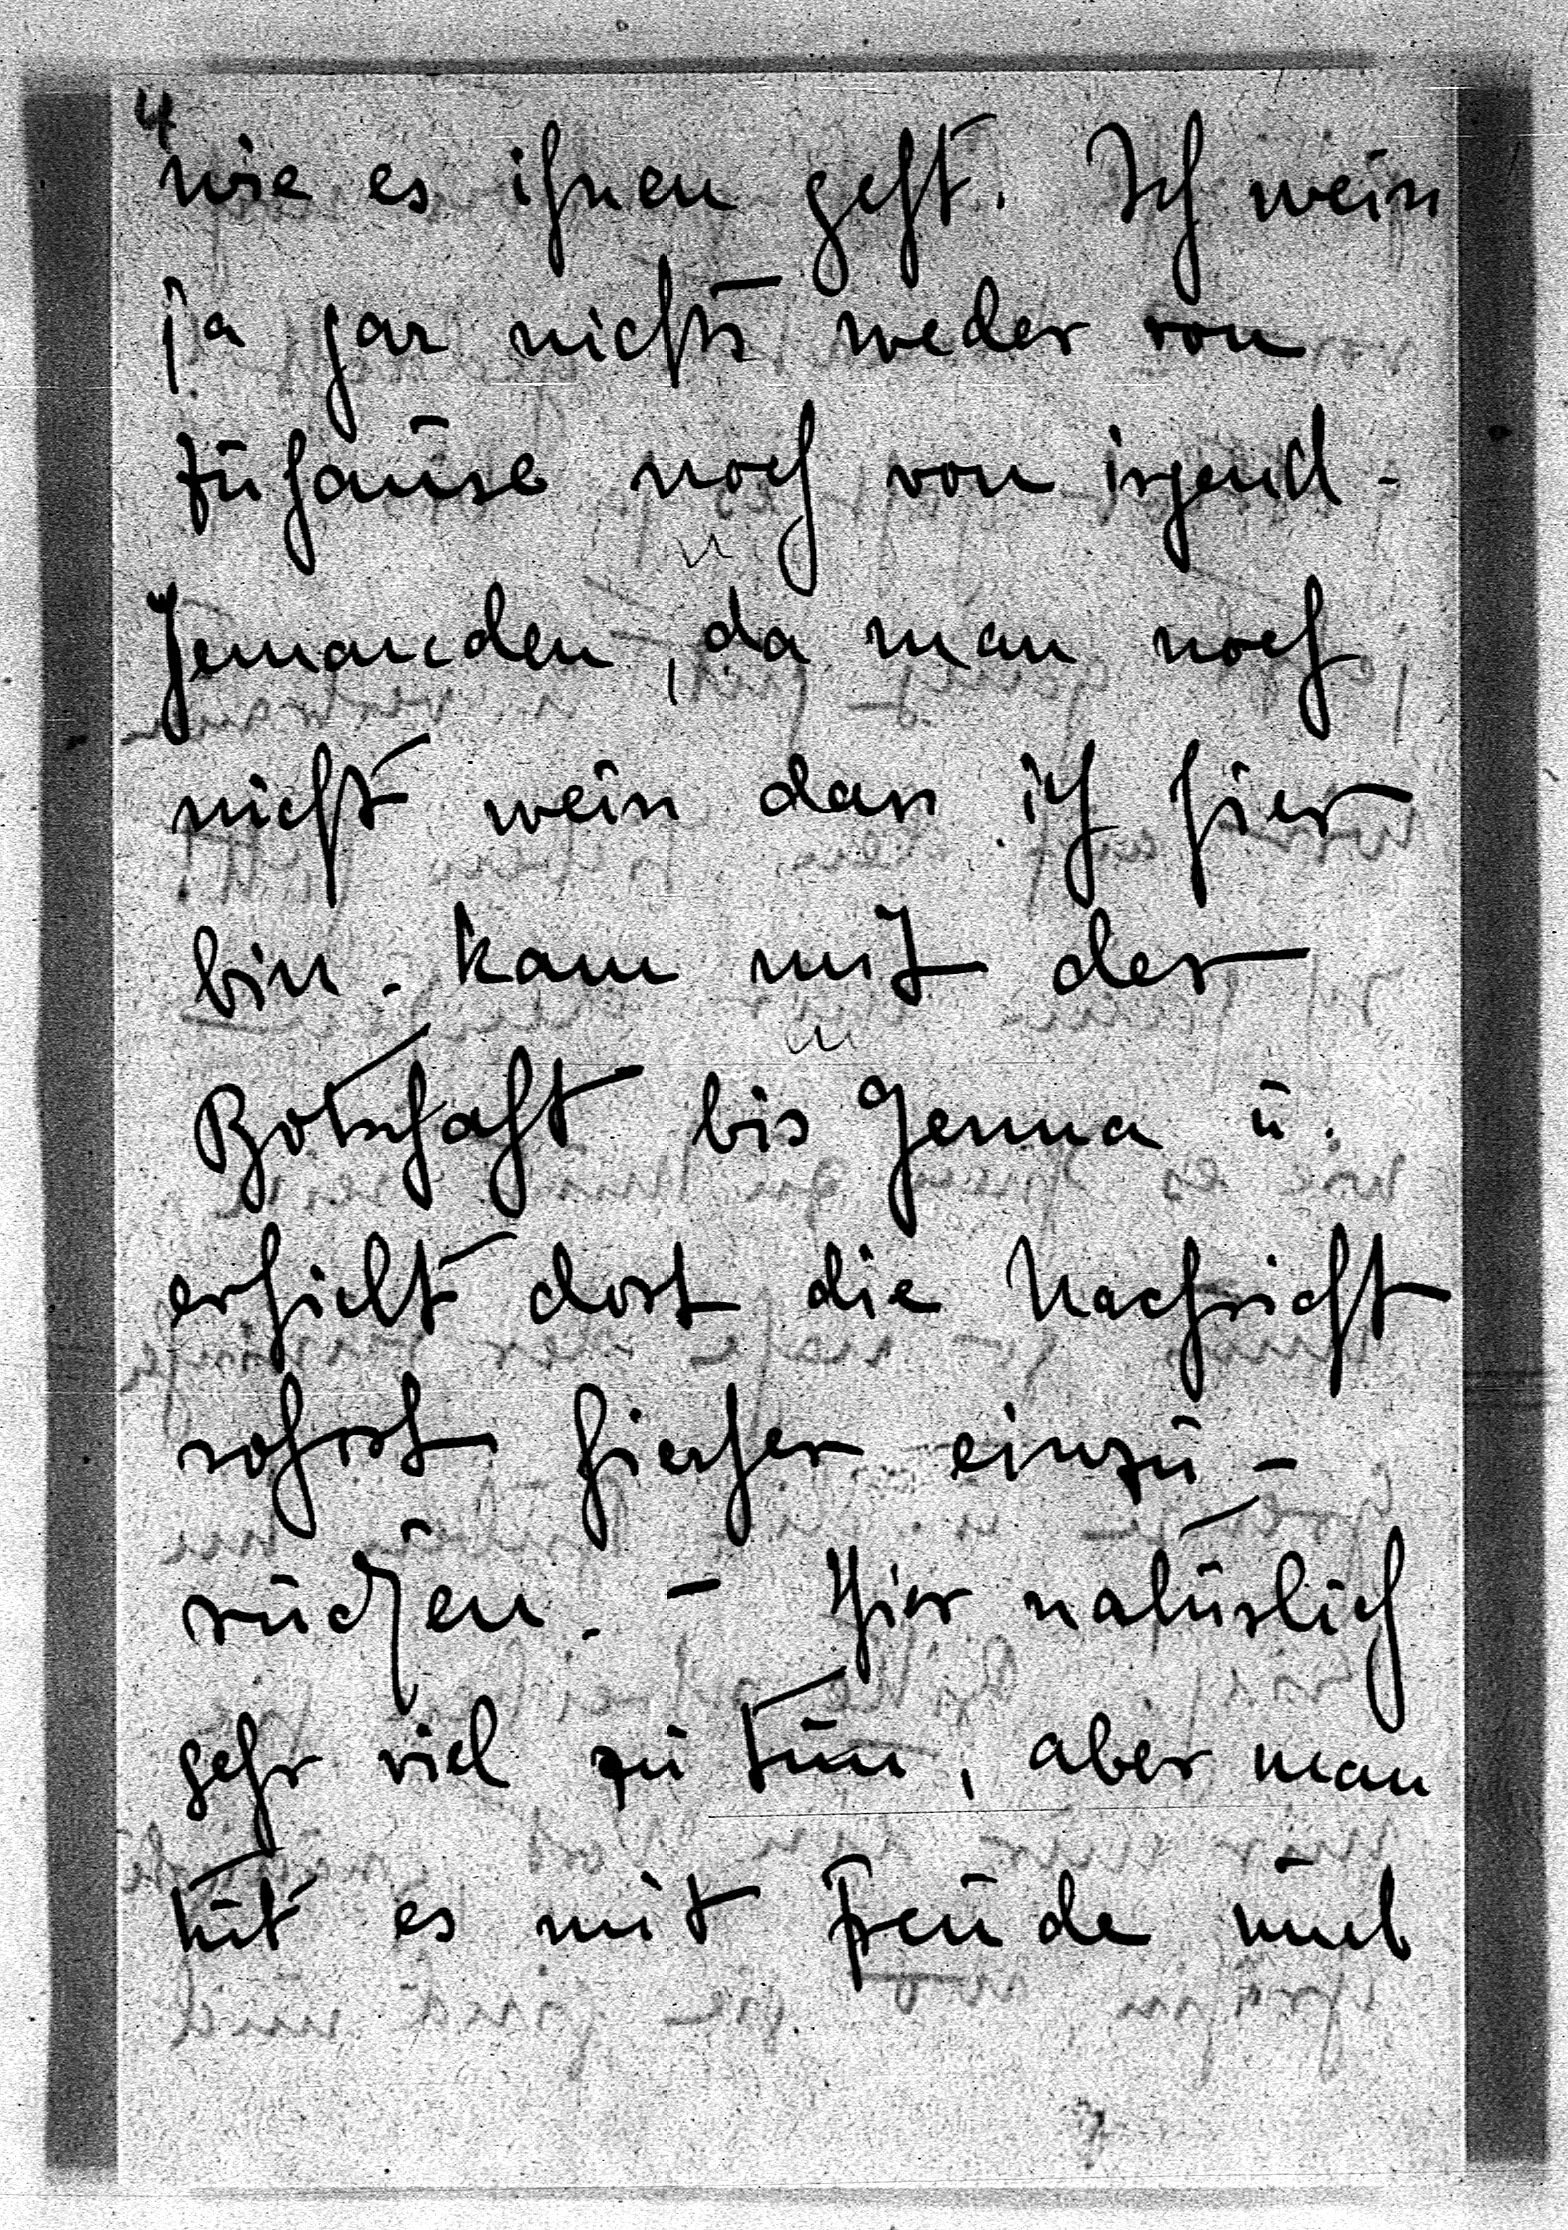 4
wie es ihnen geht. Ich weiss
ja gar nichts weder von
zuhause noch von irgend-
Jemanden, da man noch
nicht weiss dass ich hier
bin. kam mit der
Botschaft bis Genua u.
erhielt dort die Nachricht
sofort hierher einzu-
rücken. – Hier natürlich
sehr viel zu tun, aber man
tut es mit Freude und